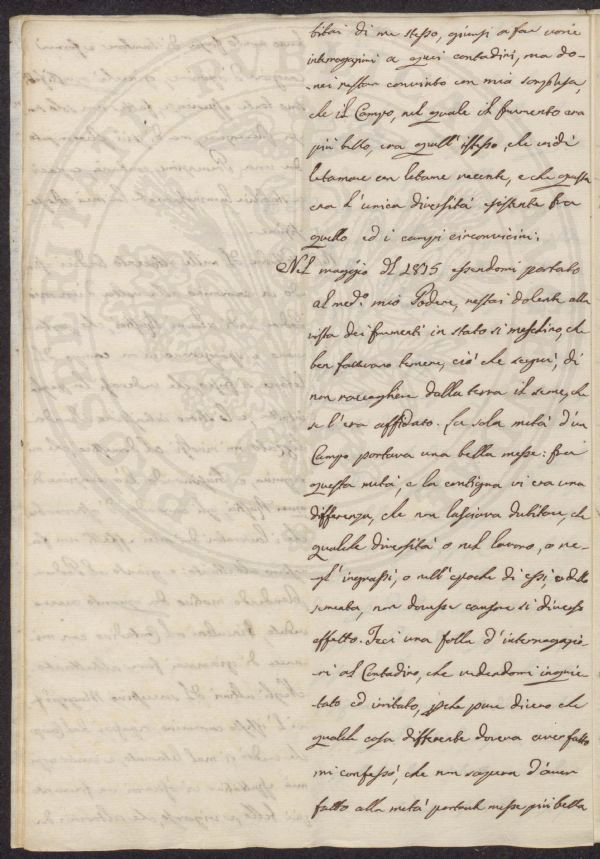 bitai di me stesso, giunsi a far varie
interrogazioni a quei contadini, ma do-
-vei restar convinto con mia sorpresa,
che il Campo, nel quale il frumento era
più bello, era quell' istesso, che vidi
letamare con letame recente, e che questa
era l'unica diversità esistente fra
quello ed i campi circonvicini.
Nel maggio del 1815 essendomi portato
al med.º mio Podere, restai dolente alla
vista dei frumenti in stato sì meschino, che
ben facevano temere, ciò che seguì, di
non raccogliere dalla terra il seme, che
se l'era affidato. La sola metà d'un
Campo portava una bella messe: frai
questa metà, e la contigua vi era una
differenza, che non lasciava dubitare, che
qualche diversità o nel lavoro, o ne-
-gl' ingrassi, o nell' epoche di essi, o della
sementa, non dovesse causare sì diverso
effetto. Feci una folla d'interrogazio-
-ni al Contadino, che vedendomi inquie-
-tato ed irritato, pche pure dicevo che
qualche cosa differente doveva aver fatto
mi confessò, che non sapeva d'aver
fatto alla metà portante messe più bella